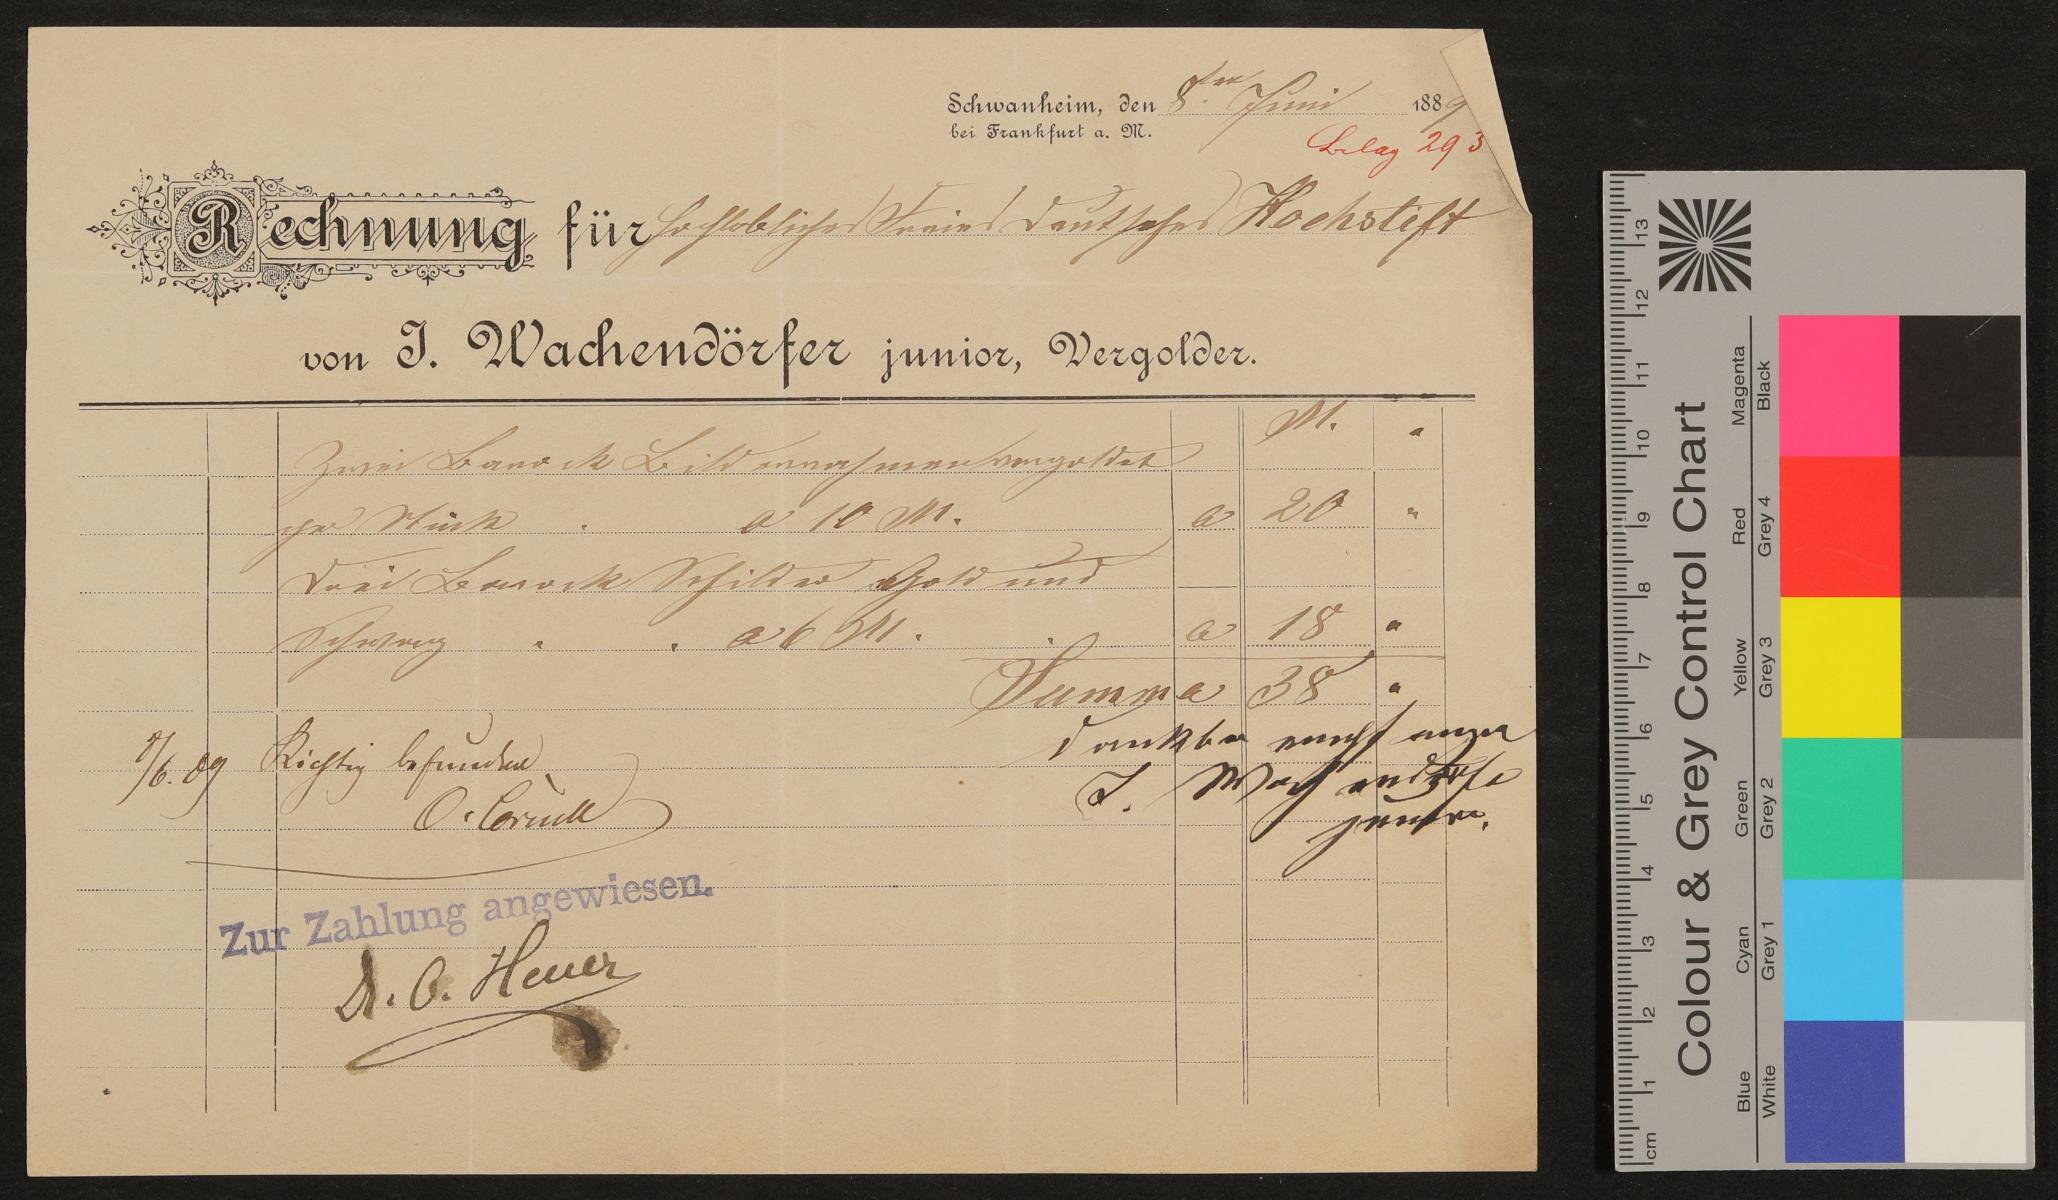 Schwanheim, den 8ten Juni 1889
bei Frankfurt a. M.
Belag 293
Rechnung für Hochlobliches Freies Deutsches Hochstift
von J. Wachendörfer junior, Vergolder.
M. "
Zwei Barock Bilderrahmen vergoldet
per Stück . a 10 M. a 20 "
Drei Barock Schilder Gold und
Schwarz " . a 6 M. . a 18 "
Summa 38 "
8/6. 89 Richtig befunden
dankbar
O.
J. Wachendörfer
junior.
Zur Zahlung angewiesen.
Dr. O. Heuer
Colour & Grey Control Chart
Magenta Red Yellow Green Cyan Blue
Black Grey 4 Grey 3 Grey 2 Grey 1 White
cm 1 2 3 4 5 6 7 8 9 10 11 12 13